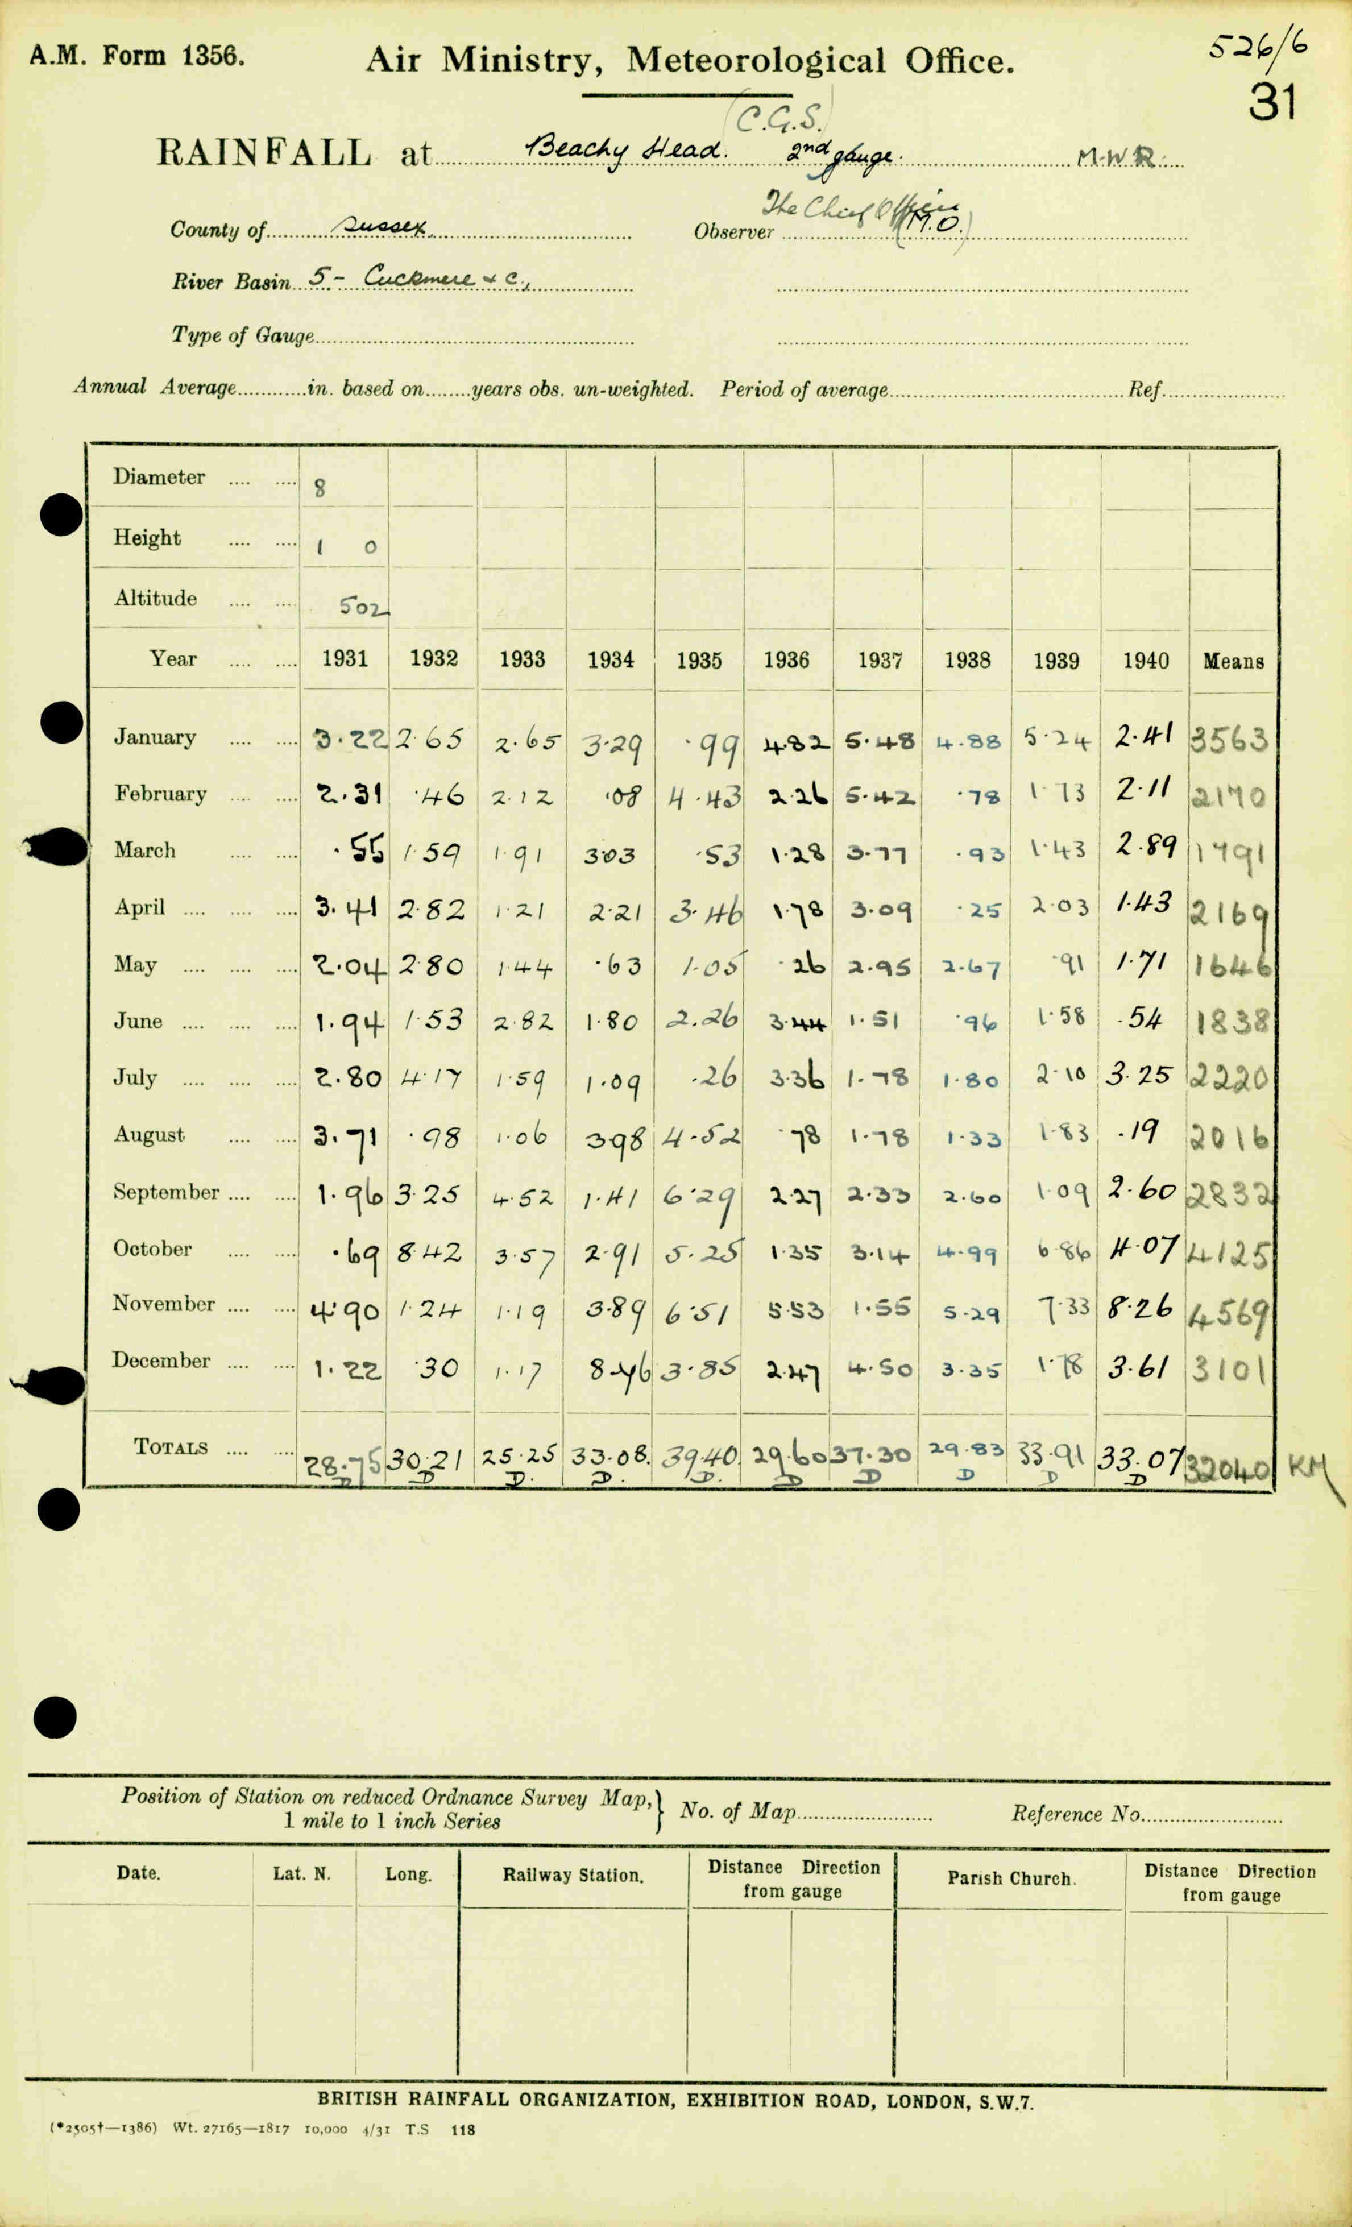 A.M. Form 1356.
Air Ministry, Meteorological Office.
526/6
31
(C.G.S.)
RAINFALL at Beachy Head. 2nd gauge. M.W.R.
The Chief Officer
County of Sussex. Observer (M.O.)
River Basin 5 - Cuckmere & c.,
Type of Gauge
Annual Average in. based on years obs. un-weighted. Period of average Ref.
Diameter 8
Height 1 0
Altitude 502
Year 1931 1932 1933 1934 1935 1936 1937 1938 1939 1940 Means
January 3.22 2.65 2.65 3.29 .99 4.82 5.48 4.88 5.24 2.41 3563
February 2.31 .46 2.12 .08 4.43 2.26 5.42 .78 1.73 2.11 2170
March .55 1.59 1.91 3.03 .53 1.28 3.77 .93 1.43 2.89 1791
April 3.41 2.82 1.21 2.21 3.46 1.78 3.09 .25 2.03 1.43 2169
May 2.04 2.80 1.44 .63 1.05 .26 2.95 2.67 .91 1.71 1646
June 1.94 1.53 2.82 1.80 2.26 3.44 1.51 .96 1.58 .54 1838
July 2.80 4.17 1.59 1.09 .26 3.36 1.78 1.80 2.10 3.25 2220
August 3.71 .98 1.06 3.98 4.52 .78 1.78 1.33 1.83 .19 2016
September 1.96 3.25 4.52 1.41 6.29 2.27 2.33 2.60 1.09 2.60 2832
October .69 8.42 3.57 2.91 5.25 1.35 3.14 4.99 6.86 4.07 4125
November 4.90 1.24 1.19 3.89 6.51 5.53 1.55 5.29 7.33 8.26 4569
December 1.22 .30 1.17 8.76 3.85 2.47 4.50 3.35 1.78 3.61 3101
TOTALS 28.75 30.21 25.25 33.08. 39.40. 29.60 37.30 29.83 33.91 33.07 32040 KM
D D D. D. D. D D D D D
Position of Station on reduced Ordnance Survey Map, } No. of Map Reference No.
1 mile to 1 inch Series
Date. Lat. N. Long. Railway Station. Distance Direction from gauge Parish Church. Distance Direction from gauge
BRITISH RAINFALL ORGANIZATION, EXHIBITION ROAD, LONDON, S.W.7.
(*2505†—1386) Wt. 27165—1817 10,000 4/31 T.S 118